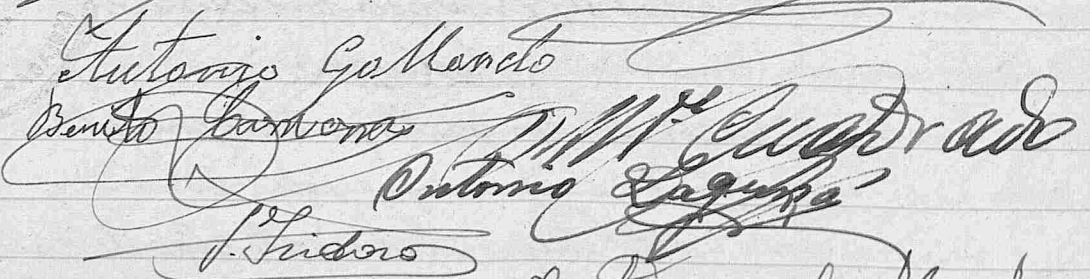 Antonio Gallardo
Benito Cardona Mª Cuadrado
Antonio Laguna
Isidoro